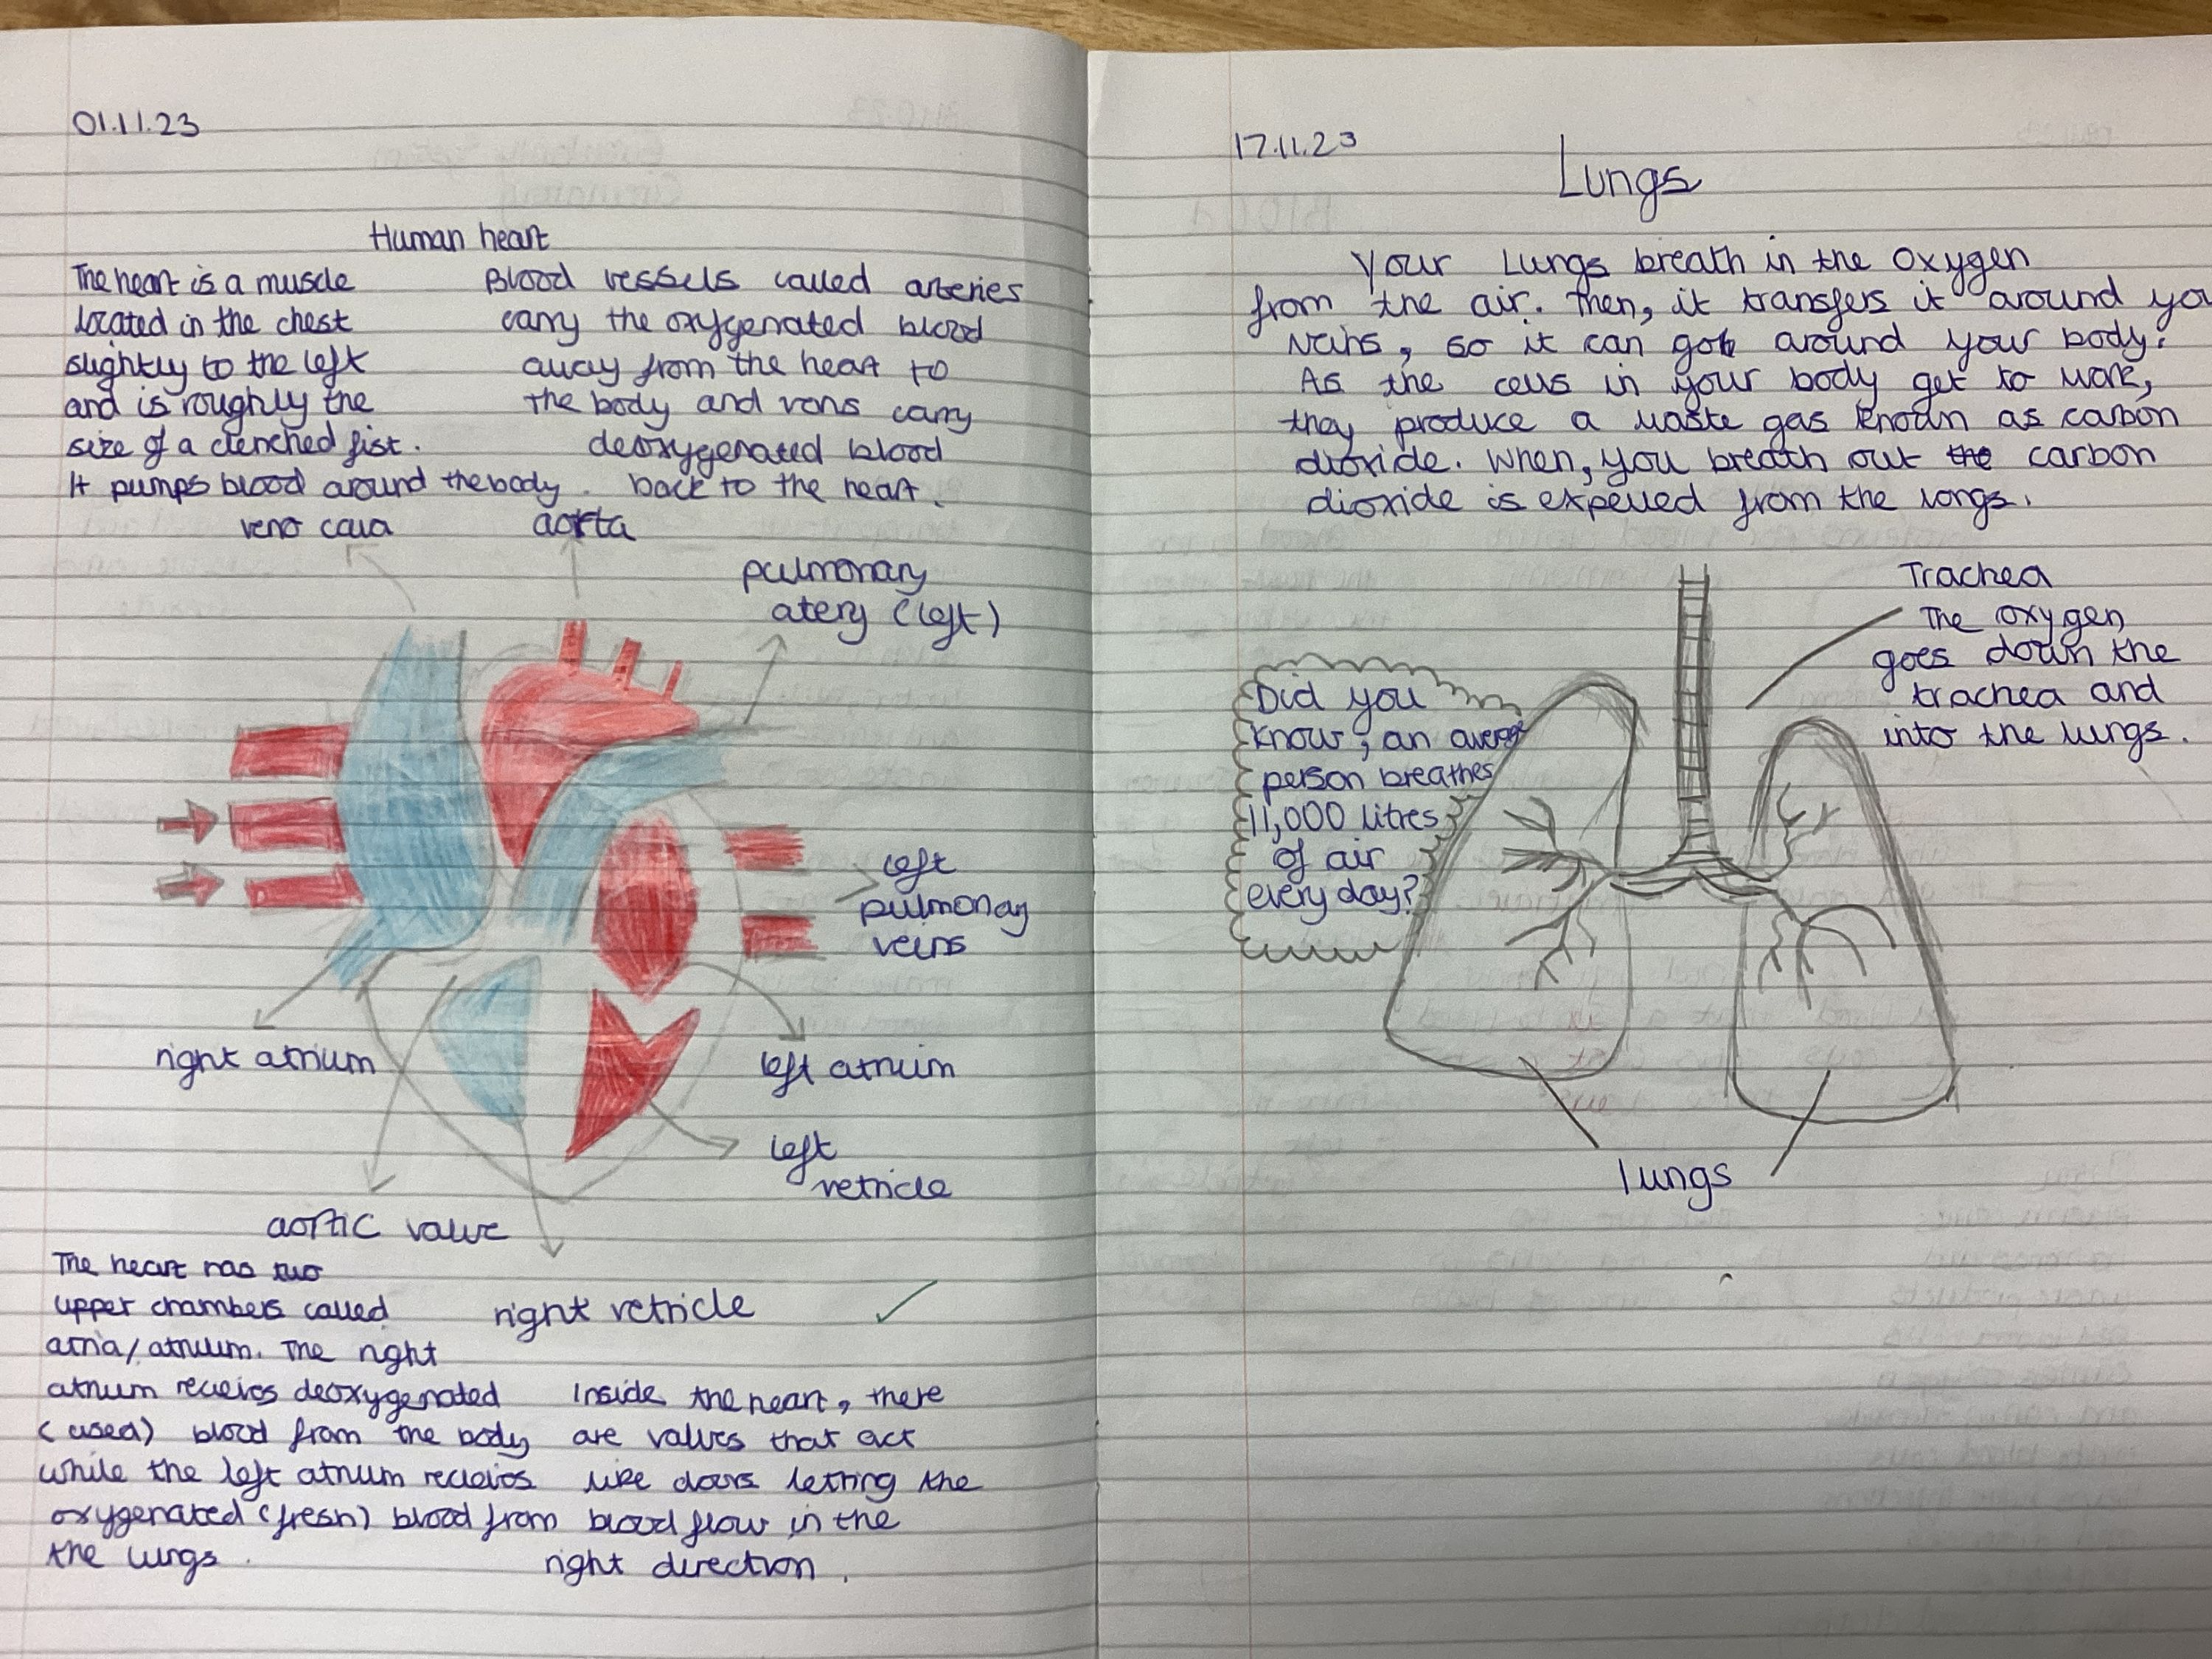 01.11.23
Human heart
The heart is a muscle
located in the chest
slightly to the left
and is roughly the
size of a clenched fist.
It pumps blood around the body.
Blood vessels called arteries
carry the oxygenated blood
away from the heart to
the body and vens carry
deoxygenated blood
back to the heart.
veno cava
aorta
pulmonary
atery (left)
left
pulmonay
veins
right atrium
left atrium
left
vetricle
aortic valve
right vetricle
The heart has two
upper chambers called
atria/atrium. The right
atrium recieves deoxygenated
(used) blood from the body
while the left atrium recieves
oxygenated (fresh) blood from
the lungs.
Inside the heart, there
are valves that act
like doors letting the
blood flow in the
right direction.
17.11.23
Lungs
Your Lungs breath in the oxygen
from the air. Then, it transfers it around you
veins, so it can go around your body.
As the cells in your body get to work,
they produce a waste gas known as carbon
dioxide. When, you breath out the carbon
dioxide is expelled from the longs.
Trachea
The oxygen
goes down the
trachea and
into the lungs.
Did you
know, an average
person breathes
11,000 litres
of air
every day?
lungs